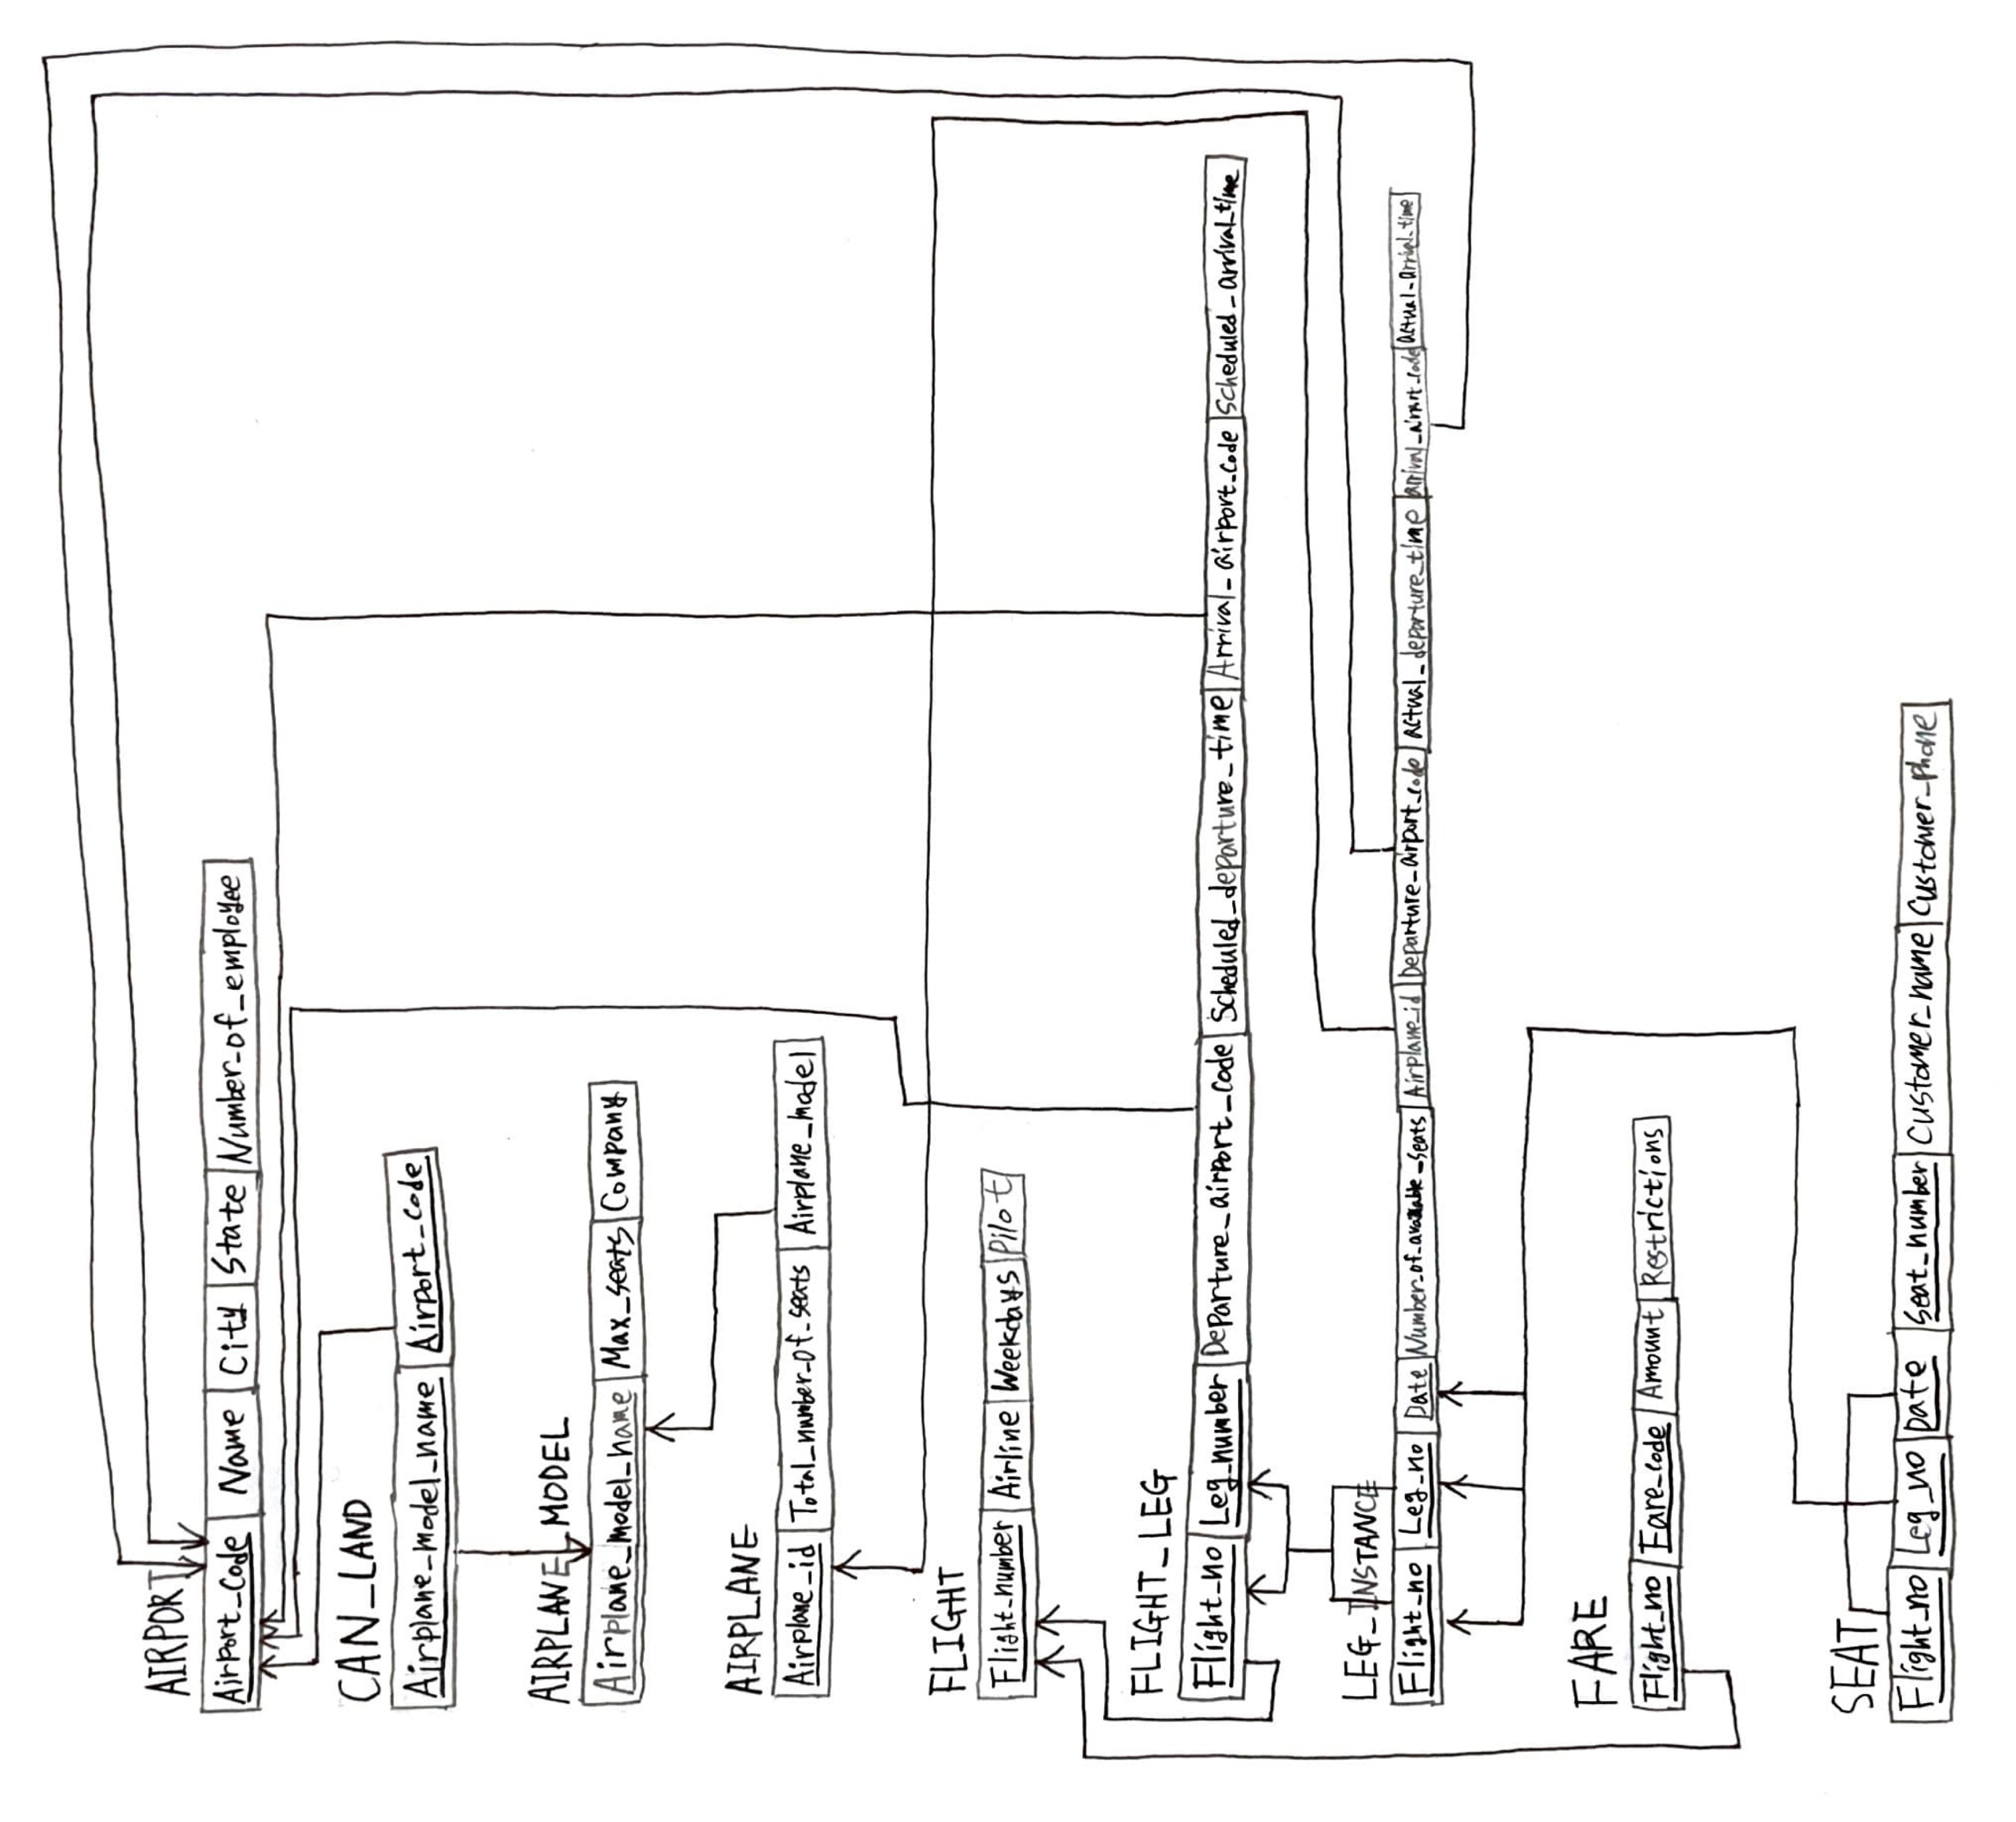 AIRPORT
Airport_Code Name City State Number_of_employee
CAN_LAND
Airplane_model_name Airport_code
AIRPLANE_MODEL
Airplane_model_name Max_seats Company
AIRPLANE
Airplane_id Total_number_of_seats Airplane_model
FLIGHT
Flight_number Airline Weekdays Pilot
FLIGHT_LEG
Flight_no Leg_number Departure_airport_code Scheduled_departure_time Arrival_airport_code Scheduled_arrival_time
LEG_INSTANCE
Flight_no Leg_no Date Number_of_available_seats Airplane_id Departure_airport_code Actual_departure_time arrival_airport_code actual_arrival_time
FARE
Flight_no Fare_code Amount Restrictions
SEAT
Flight_no Leg_no Date Seat_number Customer_name Customer_phone